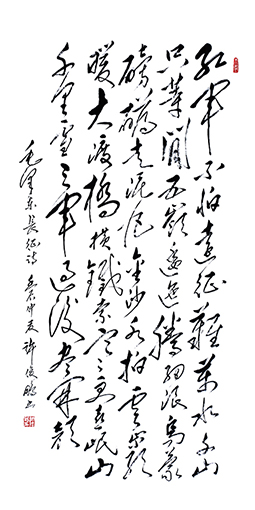 紅軍不怕遠征難萬水千山
只等閒五嶺逶迤騰細浪烏蒙
磅礴走泥丸金沙水拍雲崖
暖大渡橋橫鐵索寒更喜岷山
千里雪三軍過後盡開顏
毛澤東長征詩 仲夏 許俊鵬書